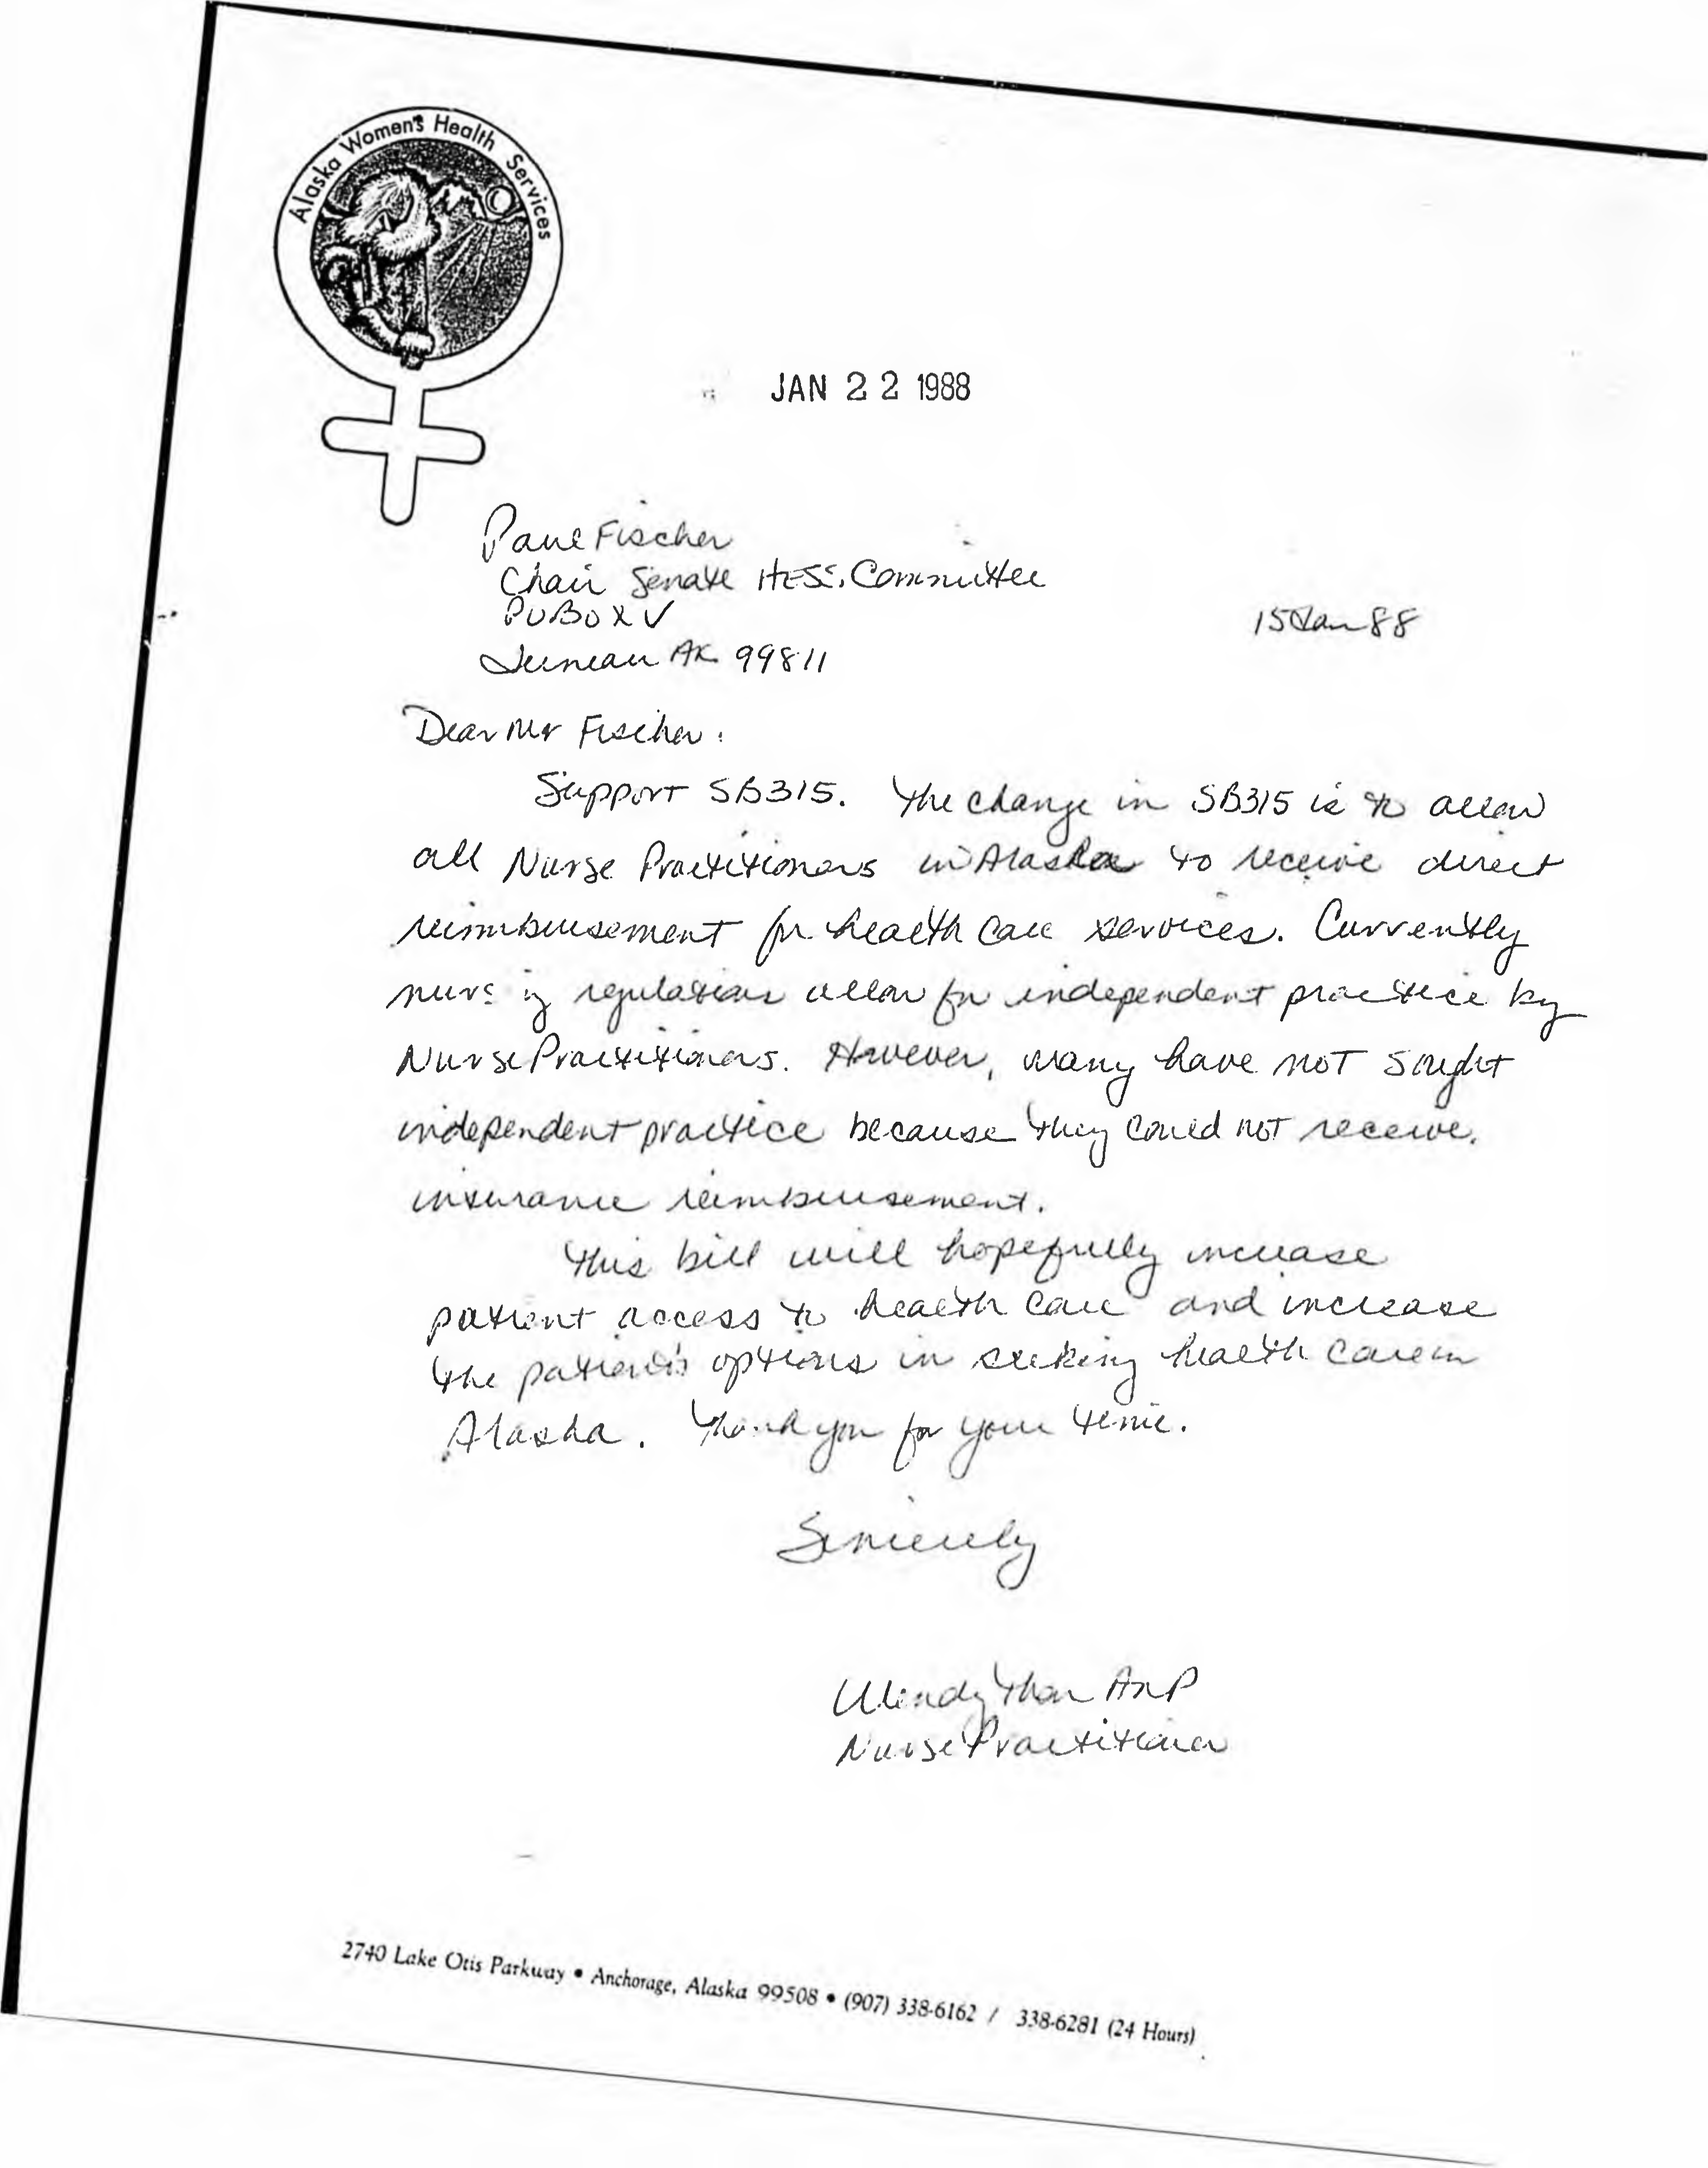 Alaska Women's Health Services
JAN 22 1988
Paul Fischer
Chair Senate HESS. Committee
PO Box V
15 Jan 88
Juneau AK 99811
Dear Mr Fischer:
Support SB315. The change in SB315 is to allow
all Nurse Practitioners in Alaska to receive direct
reimbursement for health care services. Currently
nurs g regulations allow for independent practice by
Nurse Practitioners. However, many have not sought
independent practice because they could not receive
insurance reimbursement.
This bill will hopefully increase
patient access to health care and increase
the patients options in seeking health care in
Alaska. Thank you for your time.
Sincerely
Wendy Thon ANP
Nurse Practitioner
2740 Lake Otis Parkway • Anchorage, Alaska 99508 • (907) 338-6162 / 338-6281 (24 Hours)